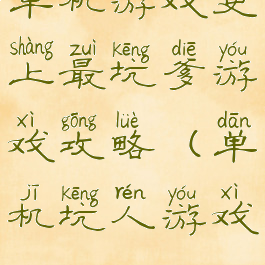 单机游戏史
shàng zuì kēng diē yóu
上最坑爹游
xì gōng lüè dān
戏攻略（单
jī kēng rén yóu xì
机坑人游戏